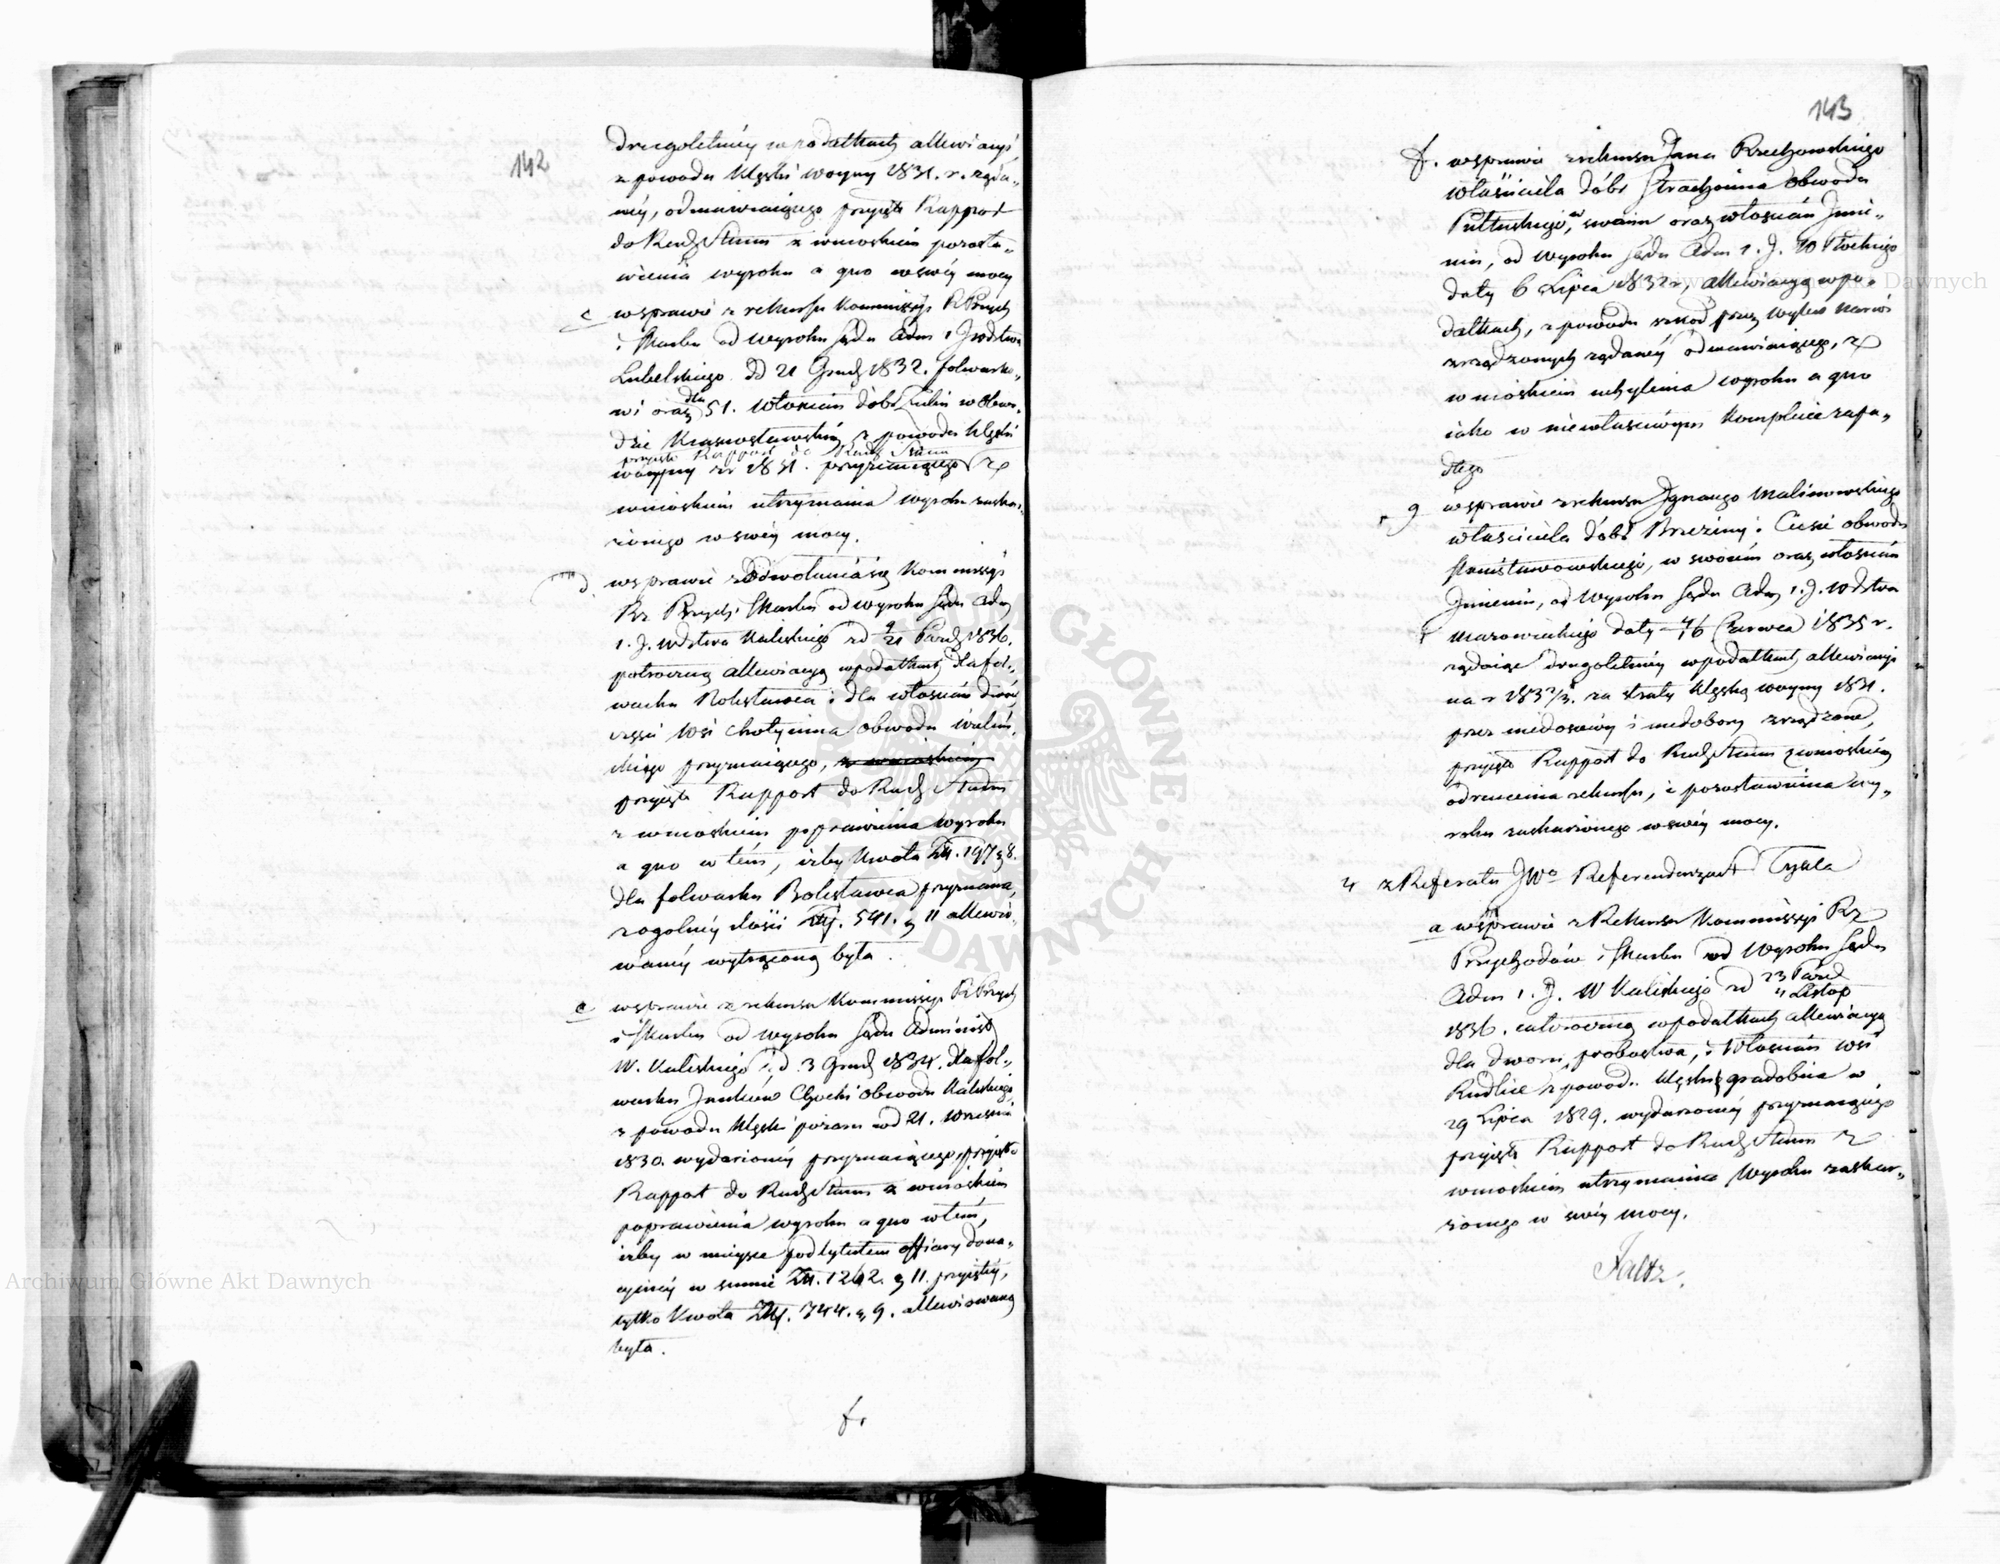 142
drugoletniéy w podatkach allewiacyi
z powodu klęski woyny 1831. r. żąda„
néy, odmawiaiącego przyięto Rapport
do Rady Stanu z wnioskiem pozosta„
wienia wyroku a quo w swéy mocy
c w sprawie z rekursu Kommissyi R Przych
i Skarbu od wyroku Sądu Adm 1 J wództwa
Lubelskiego dd 21 Grud 1832. folwarko„
wi oraz dla 51. włościan dóbr w Obwo„
dzie Krasnostawskim z powodu klęski
przyięto Rapport do Rady Stanu
woyny r 1831. przyznaiącego z
wnioskiem utrzymania wyroku zaskar„
żonego w swéy mocy.
d. w sprawie z odwołania się Kommissyi
Rz Przych i Skarbu od wyroku Sądu Adm
1. J. wdztwa Kaliskiego dd 9/21 Paźd 1836.
półroczną allewiacyą w podatkach dla fol„
warku Bolesławca i dla włościan
części wsi Chotynina obwodu Wieluń„
skiego przyznaiącego, z wnioskiem
przyięto Rapport do Rady Stanu
z wnioskiem poprawienia wyroku
a quo w tém, iżby kwota Zł. 197 g 8.
dla folwarku Bolesławca przyznana,
z ogólnéy ilości Złp. 541. g 11 allewio„
wanéy wytrąconą była.
e w sprawie z rekursu Kommissyi R Przych
i Skarbu od wyroku Sądu Administ
W. Kaliskiego dd 3 Grud 1834. dla fol„
warku Janków Obwodu Kaliskiego
z powodu klęski pożaru od 21. Września
1830. wydarzonéy przyznaiącego, przyięto
Rapport do Rady Stanu z wnioskiem
poprawienia wyroku a quo w tém,
iżby w mieysce pod tytułem ofiary dona„
cyinéy w summie Zł. 1242. g 11. przyiętéy,
tylko kwota Złp. 344. g 9. allewiowaną
była.
f.
143
f. w sprawie z rekursu Jana Rzechowskiego
właściciela dóbr Strachocina obwodu
Pułtuskiego, w swoim oraz włościan Jmie„
niu, od wyroku Sądu Adm 1. J. W Płockiego
daty 6 Lipca 1832 r, allewiacyą w po„
datkach, z powodu szkód przez wylew Narwi
zrządzonych żądanéy odmawiaiącego, z
wnioskiem uchylenia wyroku a quo
iako w niewłaściwym komplecie zapa„
dłego
g w sprawie z rekursu Jgnacego Malinowskiego
właściciela dóbr Brzeziny i Cisie obwodu
Stanisławowskiego, w swoim oraz włościan
Jmieniu, od wyroku Sądu Adm 1. J. wdztwa
Mazowieckiego daty 4/16 Czerwca 1835 r.
żądaiąc drugoletniéy w podatkach allewiacyi
na r 1832/3. za straty klęską woyny 1831.
przez niedosiewy i niedobory zrządzone,
przyięto Rapport do Rady Stanu z wnioskiem
odrzucenia rekursu, i pozostawienia wy„
roku zaskarżonego w swéy mocy.
4 z Referatu JWo Referendarza Tykla
a w sprawie z Rekursu Kommissyi Rz
Przychodów i Skarbu od Wyroku Sądu
Adm 1. J. W Kaliskiego dd 23 Paźd / 4 Listop
1836. całoroczną w podatkach allewiacyą
dla dworu, probostwa, i Włościan wsi
Rudlice z powodu klęski gradobicia w
29 Lipca 1829. wydarzonéy przyznaiącego
przyięto Rapport do Rady Stanu z
wnioskiem utrzymania Wyroku zaskar„
żonego w swéy mocy.
Faltz.
Archiwum Główne Akt Dawnych
Archiwum Główne Akt Dawnych
ARCHIWUM GŁÓWNE AKT DAWNYCH